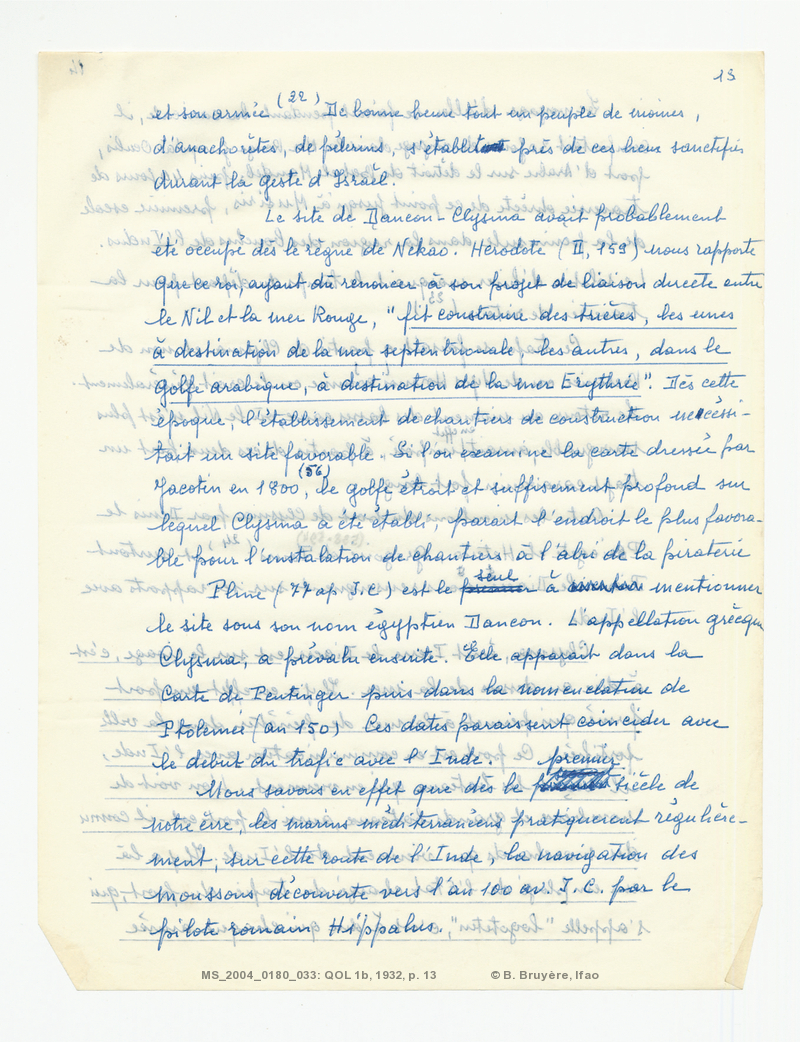 13
et son armée (22) De bonne heure tout un peuple de moines,
d'anachorètes, de pélerins, s'établit près de ces lieux sanctifiés
durant la geste d'Israël.
Le site de Daneon-Clysma avait probablement
été occupé dès le règne de Nékao. Hérodote (II, 159) nous rapporte
que ce roi, ayant dû renoncer à son projet de liaison directe entre
le Nil et la mer Rouge, "fit construire des trières, les unes
à destination de la mer septentrionale, les autres, dans le
golfe arabique, à destination de la mer Erythrée". Dès cette
époque, l'établissement de chantiers de construction nécessi-
tait un site favorable. Si l'on examine en effet la carte dressée par
Jacotin en 1800, (56) le golfe étroit et suffisement profond sur
lequel Clysma a été établi, parait l'endroit le plus favora-
ble pour l'instalation de chantiers à l'abri de la piraterie
Pline (77 ap J.C) est le seul à mentionner
le site sous son nom égyptien Daneon. L'appellation grècque
Clysma, a prévalu ensuite. Elle apparait dans la
Carte de Peutinger puis dans la nomenclation de
Ptolemée (an 150) Ces dates paraissent coincider avec
le début du trafic avec l'Inde.
Nous savons en effet que dès le premier siècle de
notre ère, les marins méditerranéens pratiquerent régulière-
ment, sur cette route de l'Inde, la navigation des
moussons découverte vers l'an 100 av. J.C. par le
pilote romain Hippalus.
MS_2004_0180_033: QOL 1b, 1932, p. 13 © B. Bruyère, Ifao